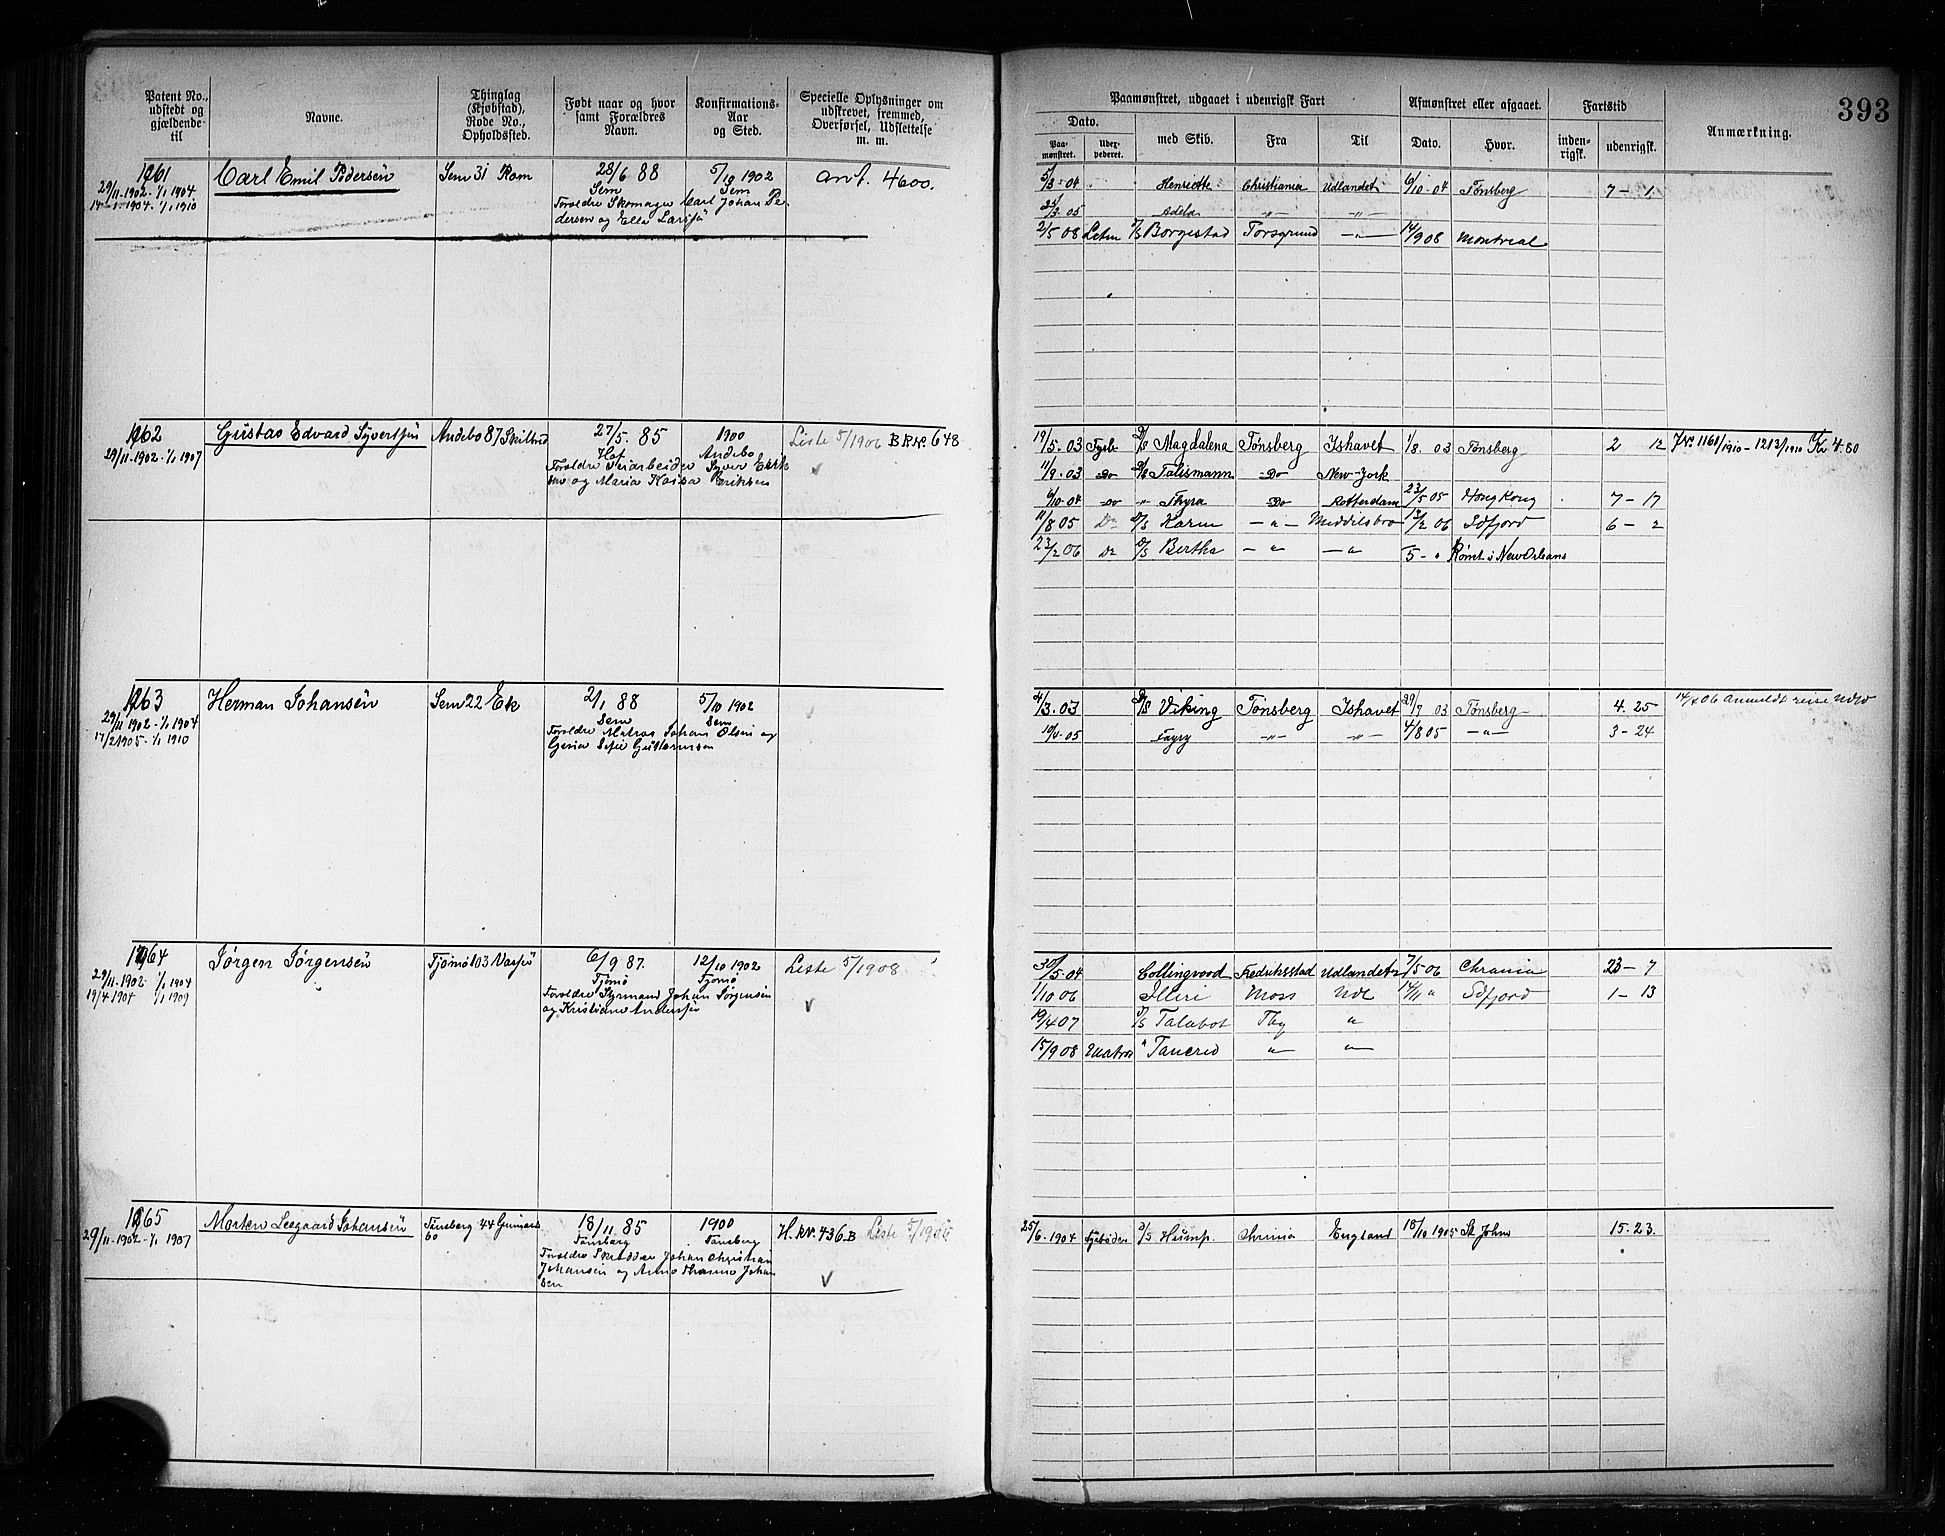 393
Patent No., udstedt og gjældende til
Navne.
Thinglag (Kjøbstad), Rode No., Opholdssted.
Født naar og hvor samt Forældres Navn.
Konfirmations-Aar og Sted.
Specielle Oplysninger om udskrevet, fremmed, Overførsel, Udslettelse m. m.
Paamønstret, udgaaet i udenrigsk Fart
Afmønstret eller afgaaet.
Fartstid
Anmærkning.
Dato.
Paa-mønstret.
med Skib.
Fra
Til
Dato.
Hvor.
inden-rigsk.
udenrigsk.
1261
29/11 1902 - 1/1 1904
1904 - 1/1 1910
Carl Emil Pedersen
Sem 31 Rom
28/6 88
Sem
Forældre Skomager Carl Johan Pe-
dersen og Ella
5/10 1902
Sem
ant. 4600.
5/3 - 04 Henriette Christiania Udlandet 6/10 - 04 Tønsberg 7 - 1
05 Adela -"- -"-
2/5 08 D/S Borgestad Porsgrund -"- 14/9 08 Montreal
1262
29/11 - 1902 - 1/1 1907
Gustav Edvard Syvertsen
Andebo 87
27/5. 85
Hof
Forældre Syver Erik
sen og Maria Eriksen
1900
Andebo
Liste 5/1906 B R.Nr. 648
19/5. 03 D/S Magdalena Tønsberg Ishavet 1/8 03 Tønsberg 2 12
11/9. 03 Do Talismann Do New-York
6/10 - 04 Do " Thyra Do Rotterdam 23/5 05 Hong Kong 7 - 17
11/8 05 Do D/S Karin - " - Middelsbro 13/2 06 Idfjord 6 - 2
23/2 06 Do D/S Bertha - " - " 5 - " Rømt i New Orleans
1263
29/11 1902 - 1/1 1904
17/2 1905 - 1/1 1910
Herman Johansen
Sem 22 Eik
2/1 88
Sem
Forældre Matros Johan Olsen og
Sofie
5/10 1902
Sem
4/3. 03 D/S Viking Tønsberg Ishavet 29/7 03 Tønsberg 4. 25
05 -"- -"- 4/8 05 -"- 3 - 24
06 Anmeldt reise
1264
29/11 - 1902 - 1/1 1904
19/4 1904 1/1 1909
Jørgen Jørgensen
Tjømø 103
6/9 87.
Tjømø
Forældre Styrmand Johan Jørgensen
og Kristiane
12/10 1902
Tjømø
Liste 5/1908
30/5. 04 Collingwood Fredriksstad Udlandet 7/5 06 Chrania 23 - 7
1/10 06 Illeri Moss Udl 14/11 " Idfjord 1 - 13
19/4 07 D/S Talabot Tbg "
15/9 08 Matros " Tancred " "
1265
29/11 - 1902 - 1/1 1907
Morten Seegaard Johansen
Tønsberg 44
60
18/11 85
Tønsberg
Forældre Skrædder Johan Christian
Johansen og Anna Johan
sen
1900
Tønsberg
H. R.Nr. 436 B Liste 5/1906
25/6. 1904 D/S Hump. England 18/10 1905 St Johns 15. 23.